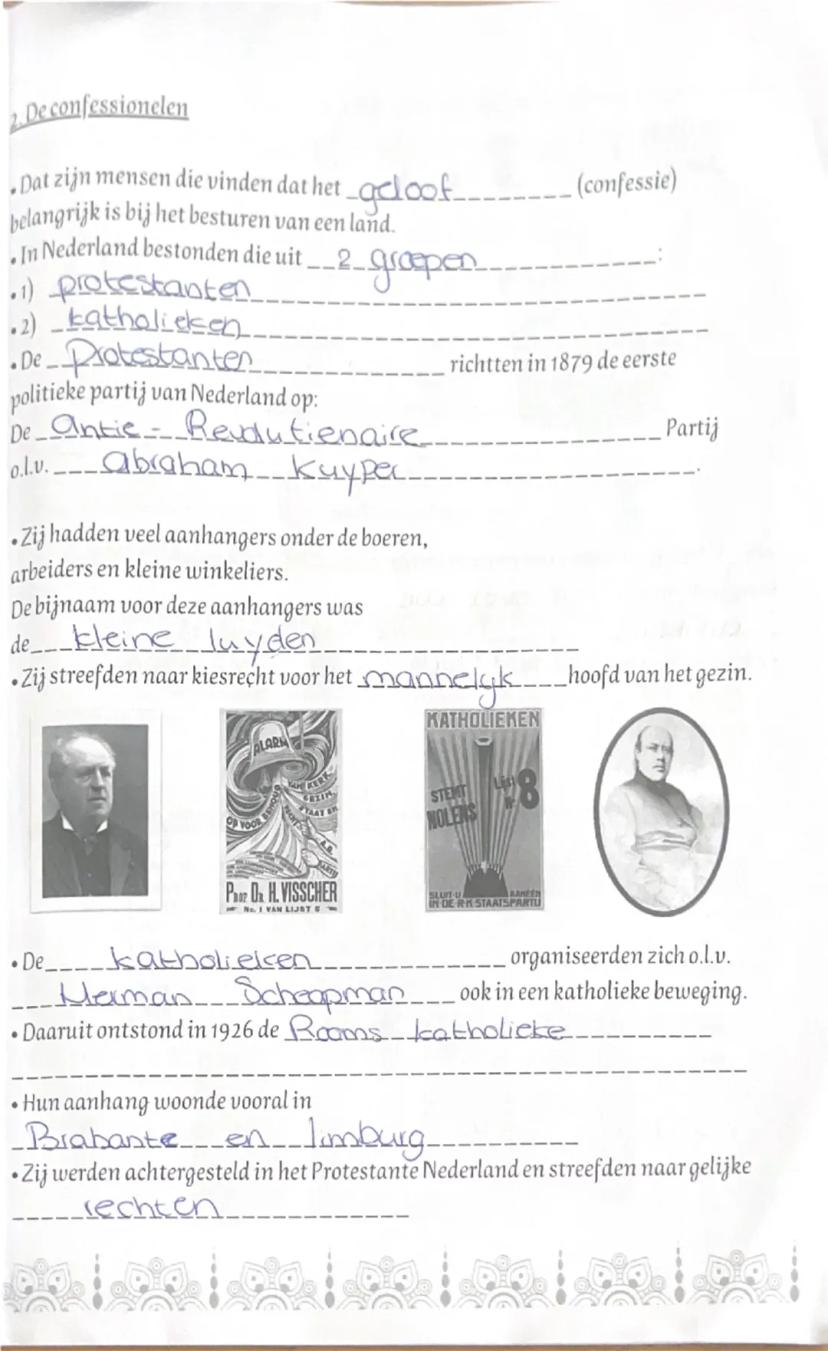 2. De confessionelen
• Dat zijn mensen die vinden dat het geloof (confessie)
belangrijk is bij het besturen van een land.
• In Nederland bestonden die uit 2 groepen :
• 1) protestanten
• 2) katholieken
• De Protestanten richtten in 1879 de eerste
politieke partij van Nederland op:
De Antie - Revolutienaire Partij
o.l.v. Abraham Kuyper.
• Zij hadden veel aanhangers onder de boeren,
arbeiders en kleine winkeliers.
De bijnaam voor deze aanhangers was
de kleine luyden
• Zij streefden naar kiesrecht voor het mannelyk hoofd van het gezin.
ALARM
OP VOOR BEHOUD
VAN KERK
GEZIN
STAAT EN
PROF. DR. H. VISSCHER
No. 1 VAN LIJST 6
KATHOLIEKEN
STEMT
NOLENS
Lijst
Nr. 8
SLUIT U AANEEN
IN DE R.K. STAATSPARTIJ
• De katholieken organiseerden zich o.l.v.
Herman Schaapman ook in een katholieke beweging.
• Daaruit ontstond in 1926 de Rooms katholieke
• Hun aanhang woonde vooral in
Brabante en limburg
• Zij werden achtergesteld in het Protestante Nederland en streefden naar gelijke
rechten